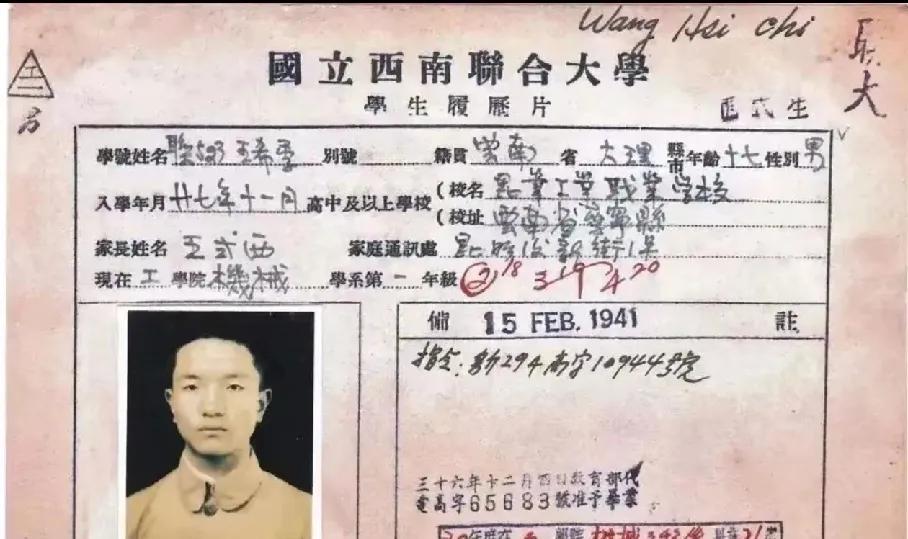 Wang Hsi chi
國立西南聯合大學
聯大
學生履歷片
正式生
學號姓名 聯503 王希季 別號 籍貫 雲南 省 大理 縣市 年齡 十七 性別 男
入學年月 廿七年十一月 高中及以上學校 (校名 昆華工業職業学校
(校址 雲南省
家長姓名 王式西 家庭通訊處
現在 工 學院 機械 學系第 一 年級 ② 18 3 19 4 20
備 註
15 FEB. 1941
指令:
三十六年十二月四日教育部代
電高字65683號准予畢業